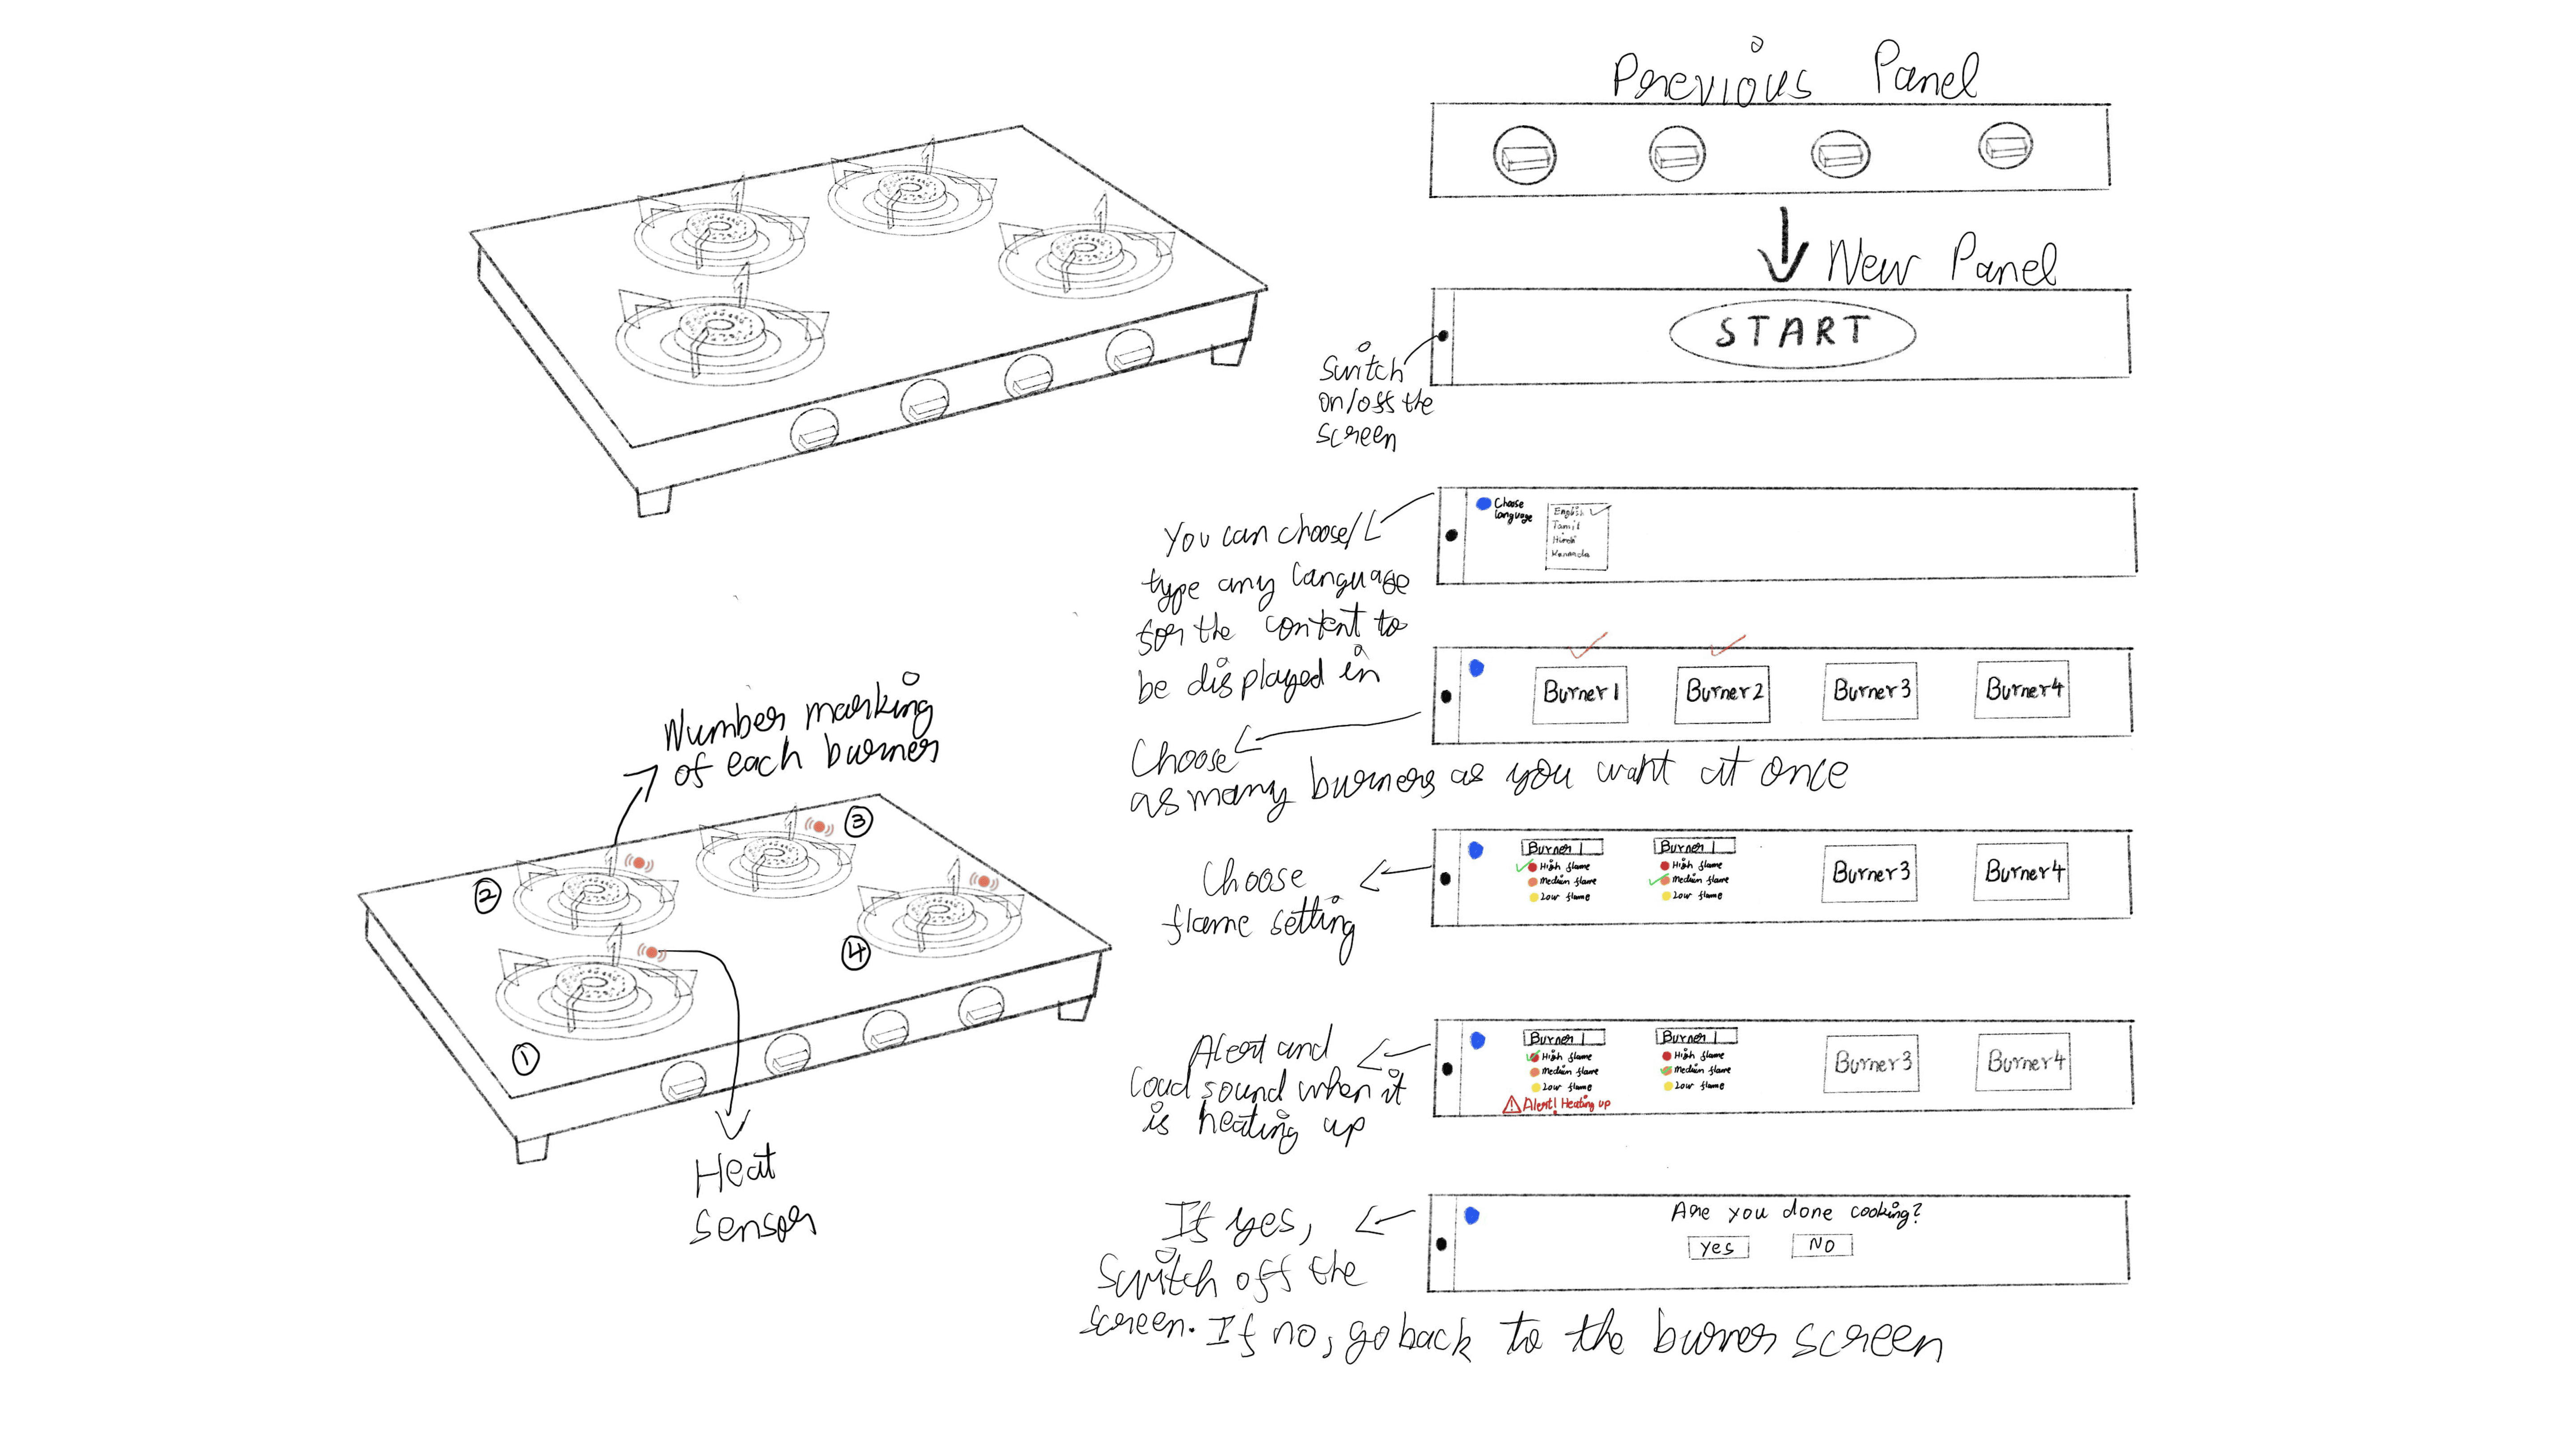 Previous Panel
New Panel
START
Switch
on/off the
screen
Choose
language
English
Tamil
Hindi
Kannada
You can choose/
type any language
for the content to
be displayed in
Burner 1
Burner 2
Burner 3
Burner 4
Choose
as many burners as you want at once
Burner 1
High flame
Medium flame
Low flame
Burner 1
High flame
Medium flame
Low flame
Burner 3
Burner 4
Choose
flame setting
Burner 1
High flame
Medium flame
Low flame
Alert! Heating up
Burner 1
High flame
Medium flame
Low flame
Burner 3
Burner 4
Alert and
loud sound when it
is heating up
Are you done cooking?
Yes
No
If yes,
Switch off the
screen. If no, go back to the burner screen
Number marking
of each burner
3
2
4
1
Heat
sensor